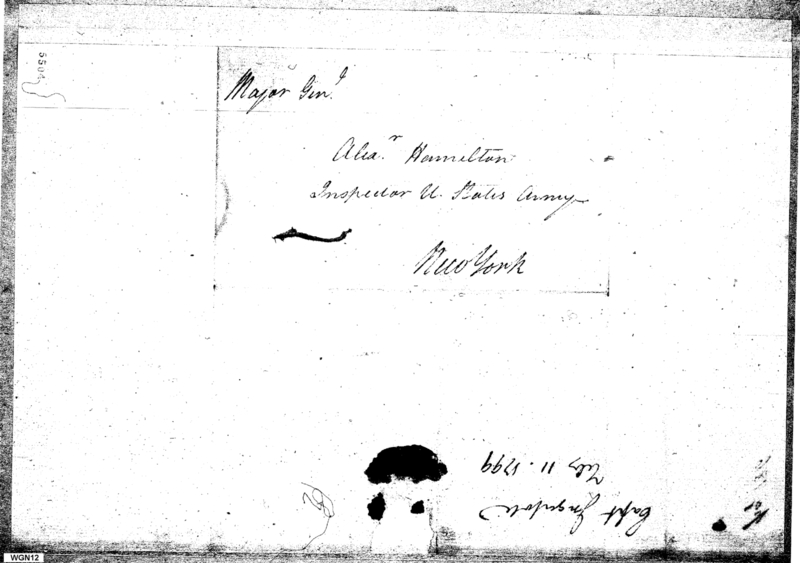 5504
Major Genl
Alexr Hamilton
Inspector U. States Army
New York
Capt Ingersoll
11. 1799
WGN12